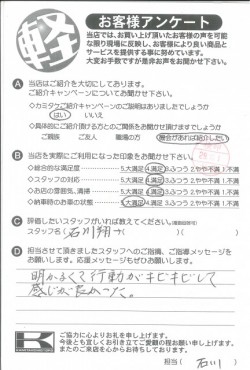 軽
お客様アンケート
当店では、お買い上げ頂いたお客様の声を可能
な限り現場に反映し、お客様により良い商品と
サービスを提供する事に努めています。
大変お手数ですが是非お声をお聞かせ下さい。
A 当店はご紹介を大切にしております。
ご紹介キャンペーンについてお聞かせ下さい。
◇カミタケご紹介キャンペーンのご説明はありましたでしょうか
はい いいえ
◇具体的にご紹介頂ける方とのご関係をお聞かせ頂けますでしょうか
ご親族 ご友人 職場の方 機会があれば紹介したい
B 当店を実際にご利用になった印象をお聞かせ下さい。
◇総合的な満足度 5.大満足 4.満足 3.ふつう 2.やや不満 1.不満
◇スタッフの対応 5.大満足 4.満足 3.ふつう 2.やや不満 1.不満
◇お店の雰囲気、清掃 5.大満足 4.満足 3.ふつう 2.やや不満 1.不満
◇納車時のお車の状態 5.大満足 4.満足 3.ふつう 2.やや不満 1.不満
C 評価したいスタッフがいれば教えてください。
スタッフ名( 石川翔 )( )
D 担当させて頂きましたスタッフへのご指摘、ご指導メッセージを
お願いします。応援メッセージもぜひお願いします。
明かるくて行動がキビキビして
感じが良かった。
ご協力に心よりお礼を申し上げます。
今後とも宜しくお引き立てご愛顧の程お願い申し上げます。
またのご来店を心からお待ちしております。
担当( 石川 )